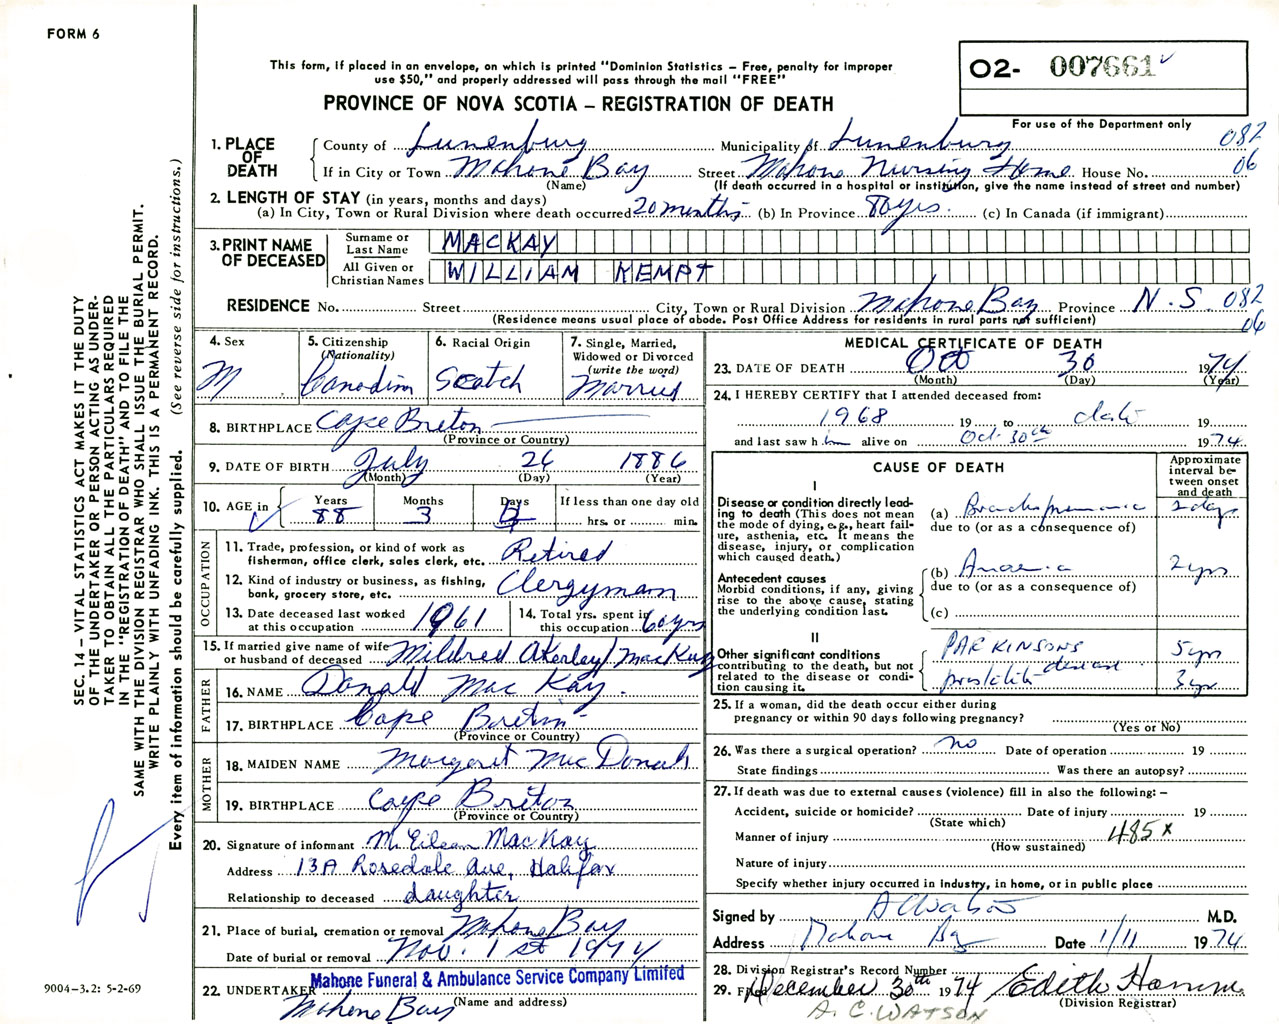 FORM 6
This form, if placed in an envelope, on which is printed "Dominion Statistics – Free, penalty for improper
use $50," and properly addressed will pass through the mail "FREE"
PROVINCE OF NOVA SCOTIA – REGISTRATION OF DEATH
02- 007661
For use of the Department only
082
06
1. PLACE OF DEATH
County of Lunenburg Municipality of Lunenburg
If in City or Town Mahone Bay Street Mahone Nursing Home House No.
(Name) (If death occurred in a hospital or institution, give the name instead of street and number)
2. LENGTH OF STAY (in years, months and days)
(a) In City, Town or Rural Division where death occurred 20 months (b) In Province 80 yrs. (c) In Canada (if immigrant)
3. PRINT NAME OF DECEASED
Surname or Last Name MACKAY
All Given or Christian Names WILLIAM KEMPT
RESIDENCE No. Street City, Town or Rural Division Mahone Bay Province N.S. 082
(Residence means usual place of abode. Post Office Address for residents in rural parts not sufficient) 06
4. Sex M
5. Citizenship (Nationality) Canadian
6. Racial Origin Scotch
7. Single, Married, Widowed or Divorced (write the word) Married
8. BIRTHPLACE Cape Breton
(Province or Country)
9. DATE OF BIRTH July 26 1886
(Month) (Day) (Year)
10. AGE in Years 88 Months 3 Days
If less than one day old
hrs. or min.
OCCUPATION
11. Trade, profession, or kind of work as
fisherman, office clerk, sales clerk, etc. Retired
12. Kind of industry or business, as fishing,
bank, grocery store, etc. Clergyman
13. Date deceased last worked
at this occupation 1961
14. Total yrs. spent in
this occupation 60 yrs
15. If married give name of wife
or husband of deceased Mildred Akerley MacKay
FATHER
16. NAME Donald MacKay.
17. BIRTHPLACE Cape Breton
(Province or Country)
MOTHER
18. MAIDEN NAME Margaret MacDonald
19. BIRTHPLACE Cape Breton
(Province or Country)
20. Signature of informant M. Eileen MacKay
Address 13A Rosedale Ave, Halifax
Relationship to deceased daughter
21. Place of burial, cremation or removal Mahone Bay
Date of burial or removal Nov. 1st 1974
Mahone Funeral & Ambulance Service Company Limited
22. UNDERTAKER Mahone Bay
(Name and address)
MEDICAL CERTIFICATE OF DEATH
23. DATE OF DEATH Oct 30 1974
(Month) (Day) (Year)
24. I HEREBY CERTIFY that I attended deceased from:
1968 19 to date 19
and last saw him alive on Oct. 30th 1974
CAUSE OF DEATH
Approximate interval between onset and death
I
Disease or condition directly leading to death (This does not mean the mode of dying, e.g., heart failure, asthenia, etc. It means the disease, injury, or complication which caused death.)
(a) Bronchopneumonia 2 days
due to (or as a consequence of)
Antecedent causes
Morbid conditions, if any, giving rise to the above cause, stating the underlying condition last.
(b) Anaemia 2 yrs
due to (or as a consequence of)
(c)
II
Other significant conditions
contributing to the death, but not related to the disease or condition causing it.
PARKINSONS disease 5 yrs
prostatitis 3 yrs
25. If a woman, did the death occur either during
pregnancy or within 90 days following pregnancy?
(Yes or No)
26. Was there a surgical operation? no Date of operation 19
State findings Was there an autopsy?
27. If death was due to external causes (violence) fill in also the following: –
Accident, suicide or homicide? Date of injury 19
(State which)
Manner of injury 485x
(How sustained)
Nature of injury
Specify whether injury occurred in industry, in home, or in public place
Signed by A C Watson M.D.
Address Mahone Bay Date 1/11 1974
28. Division Registrar's Record Number
29. Filed December 30th 1974 Edith
(Division Registrar)
A. C. WATSON
SEC. 14 – VITAL STATISTICS ACT MAKES IT THE DUTY
OF THE UNDERTAKER OR PERSON ACTING AS UNDER-
TAKER TO OBTAIN ALL THE PARTICULARS REQUIRED
IN THE "REGISTRATION OF DEATH" AND TO FILE THE
SAME WITH THE DIVISION REGISTRAR WHO SHALL ISSUE THE BURIAL PERMIT.
WRITE PLAINLY WITH UNFADING INK. THIS IS A PERMANENT RECORD.
Every item of information should be carefully supplied. (See reverse side for instructions.)
9004-3.2: 5-2-69